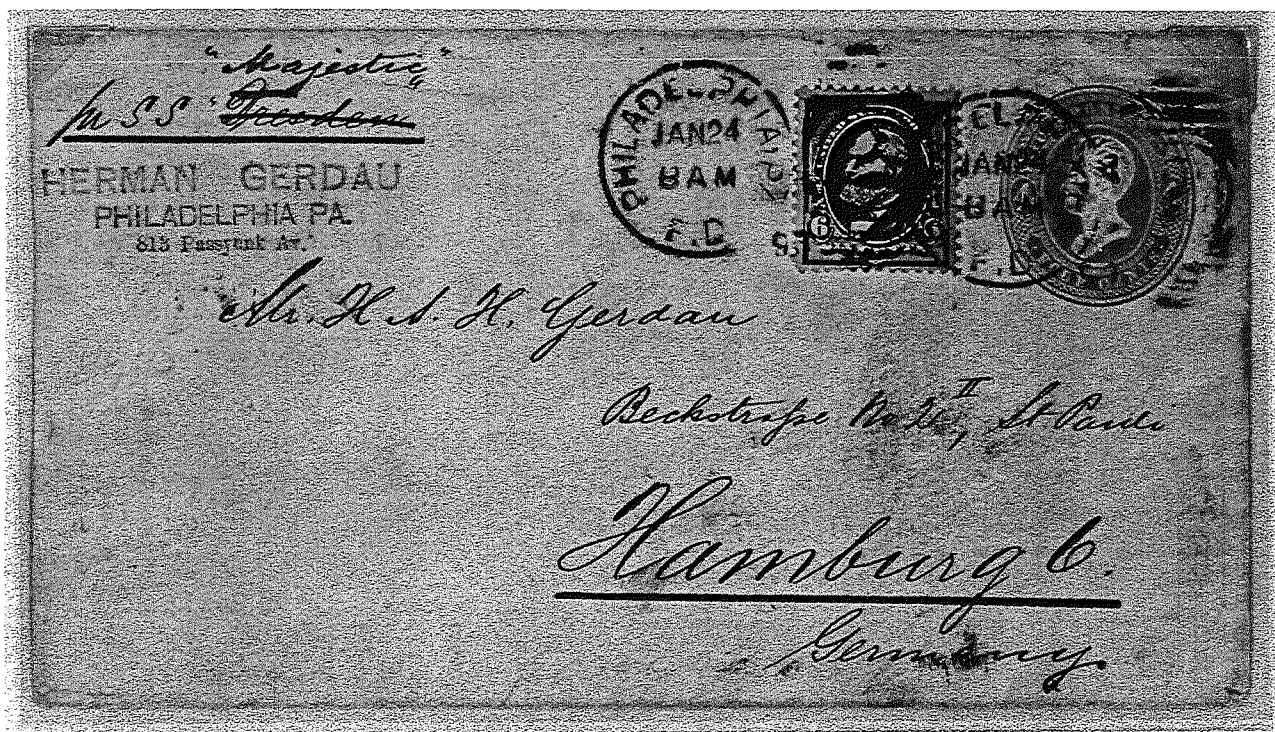 "Majestic"
per SS "Dresden
HERMAN GERDAU
PHILADELPHIA PA.
813 Passyunk Av.
PHILADELPHIA PA
JAN 24
8 AM
F.D
6 6
EL
JAN 24
8 AM
F.D
Mr. H. A. H. Gerdau
Beckstraße No II, St Pauli
Hamburg 6.
Germany.